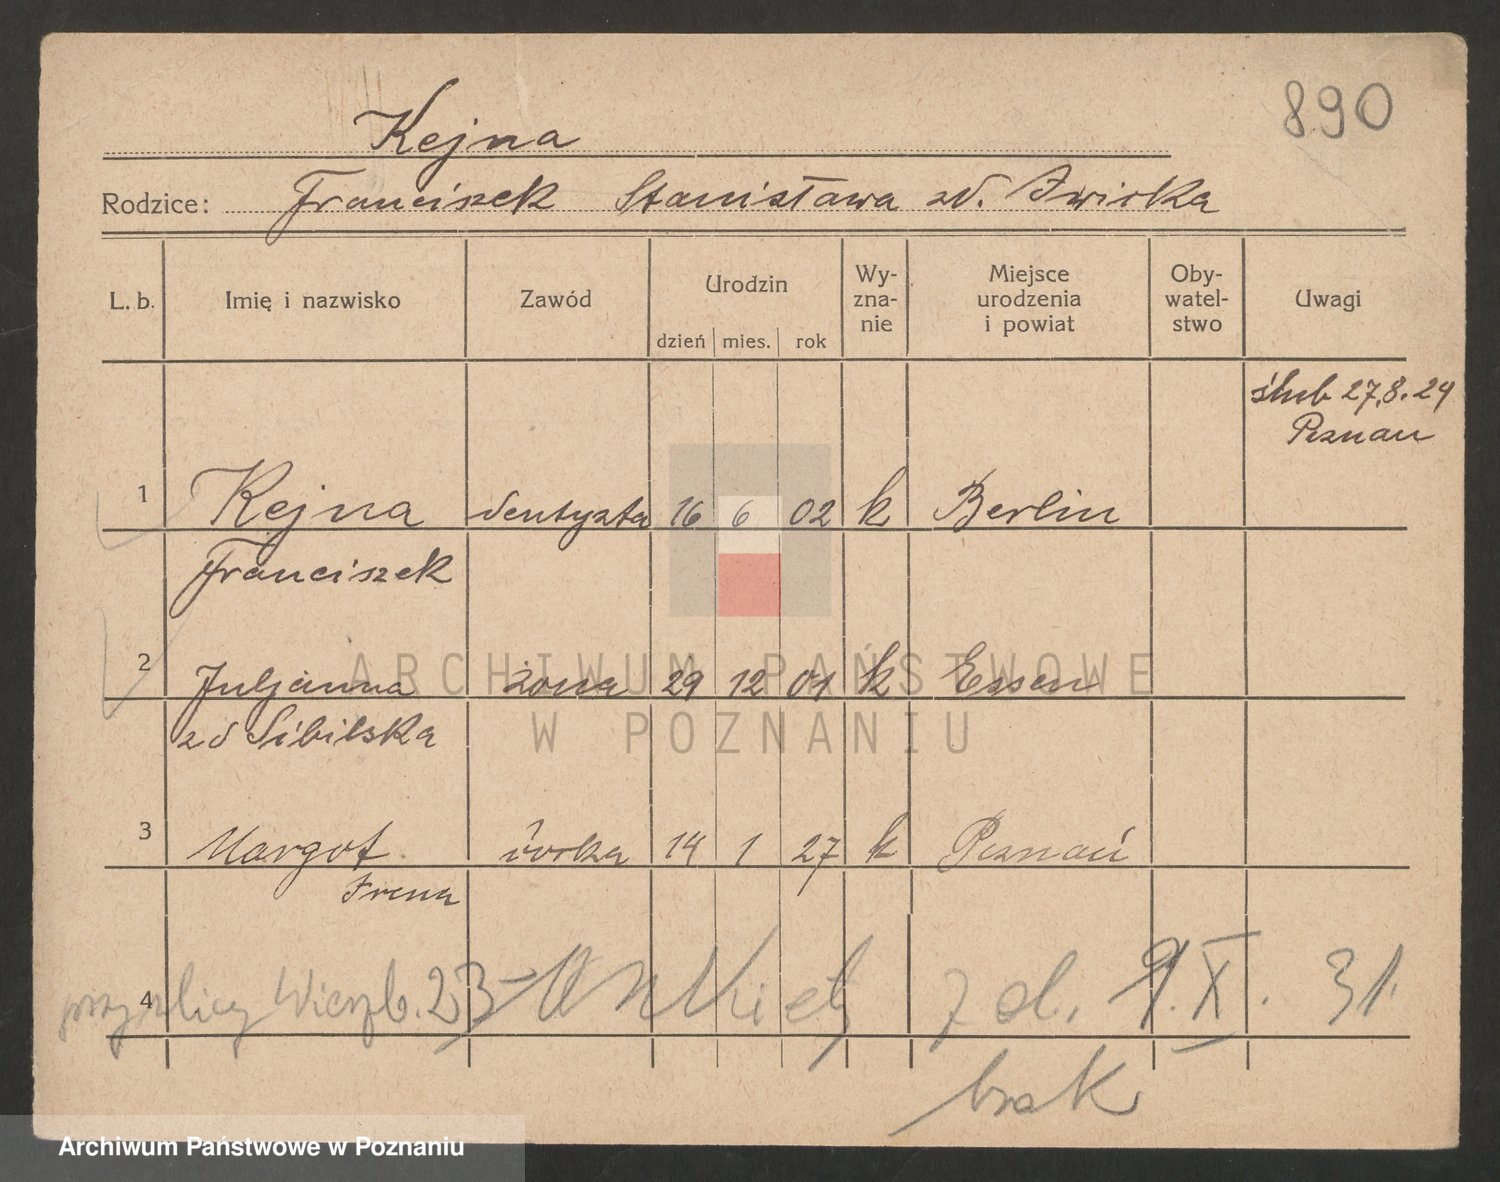 890
Kejna
Rodzice: Franciszek Stanisława zd. Żwirka
L. b. Imię i nazwisko Zawód Urodzin dzień mies. rok Wy-zna-nie Miejsce urodzenia i powiat Oby-watel-stwo Uwagi
ślub 27.8.24
Poznań
1 Kejna dentysta 16 6 02 k Berlin
Franciszek
2 Juljanna żona 29 12 01 k Essen
zd Sibilska
3 Margot córka 14 1 27 k Poznań
Irena
4 przy ulicy Wierzb. 23 - Ankiety z d. 9. X. 31.
brak
ARCHIWUM PAŃSTWOWE
W POZNANIU
Archiwum Państwowe w Poznaniu